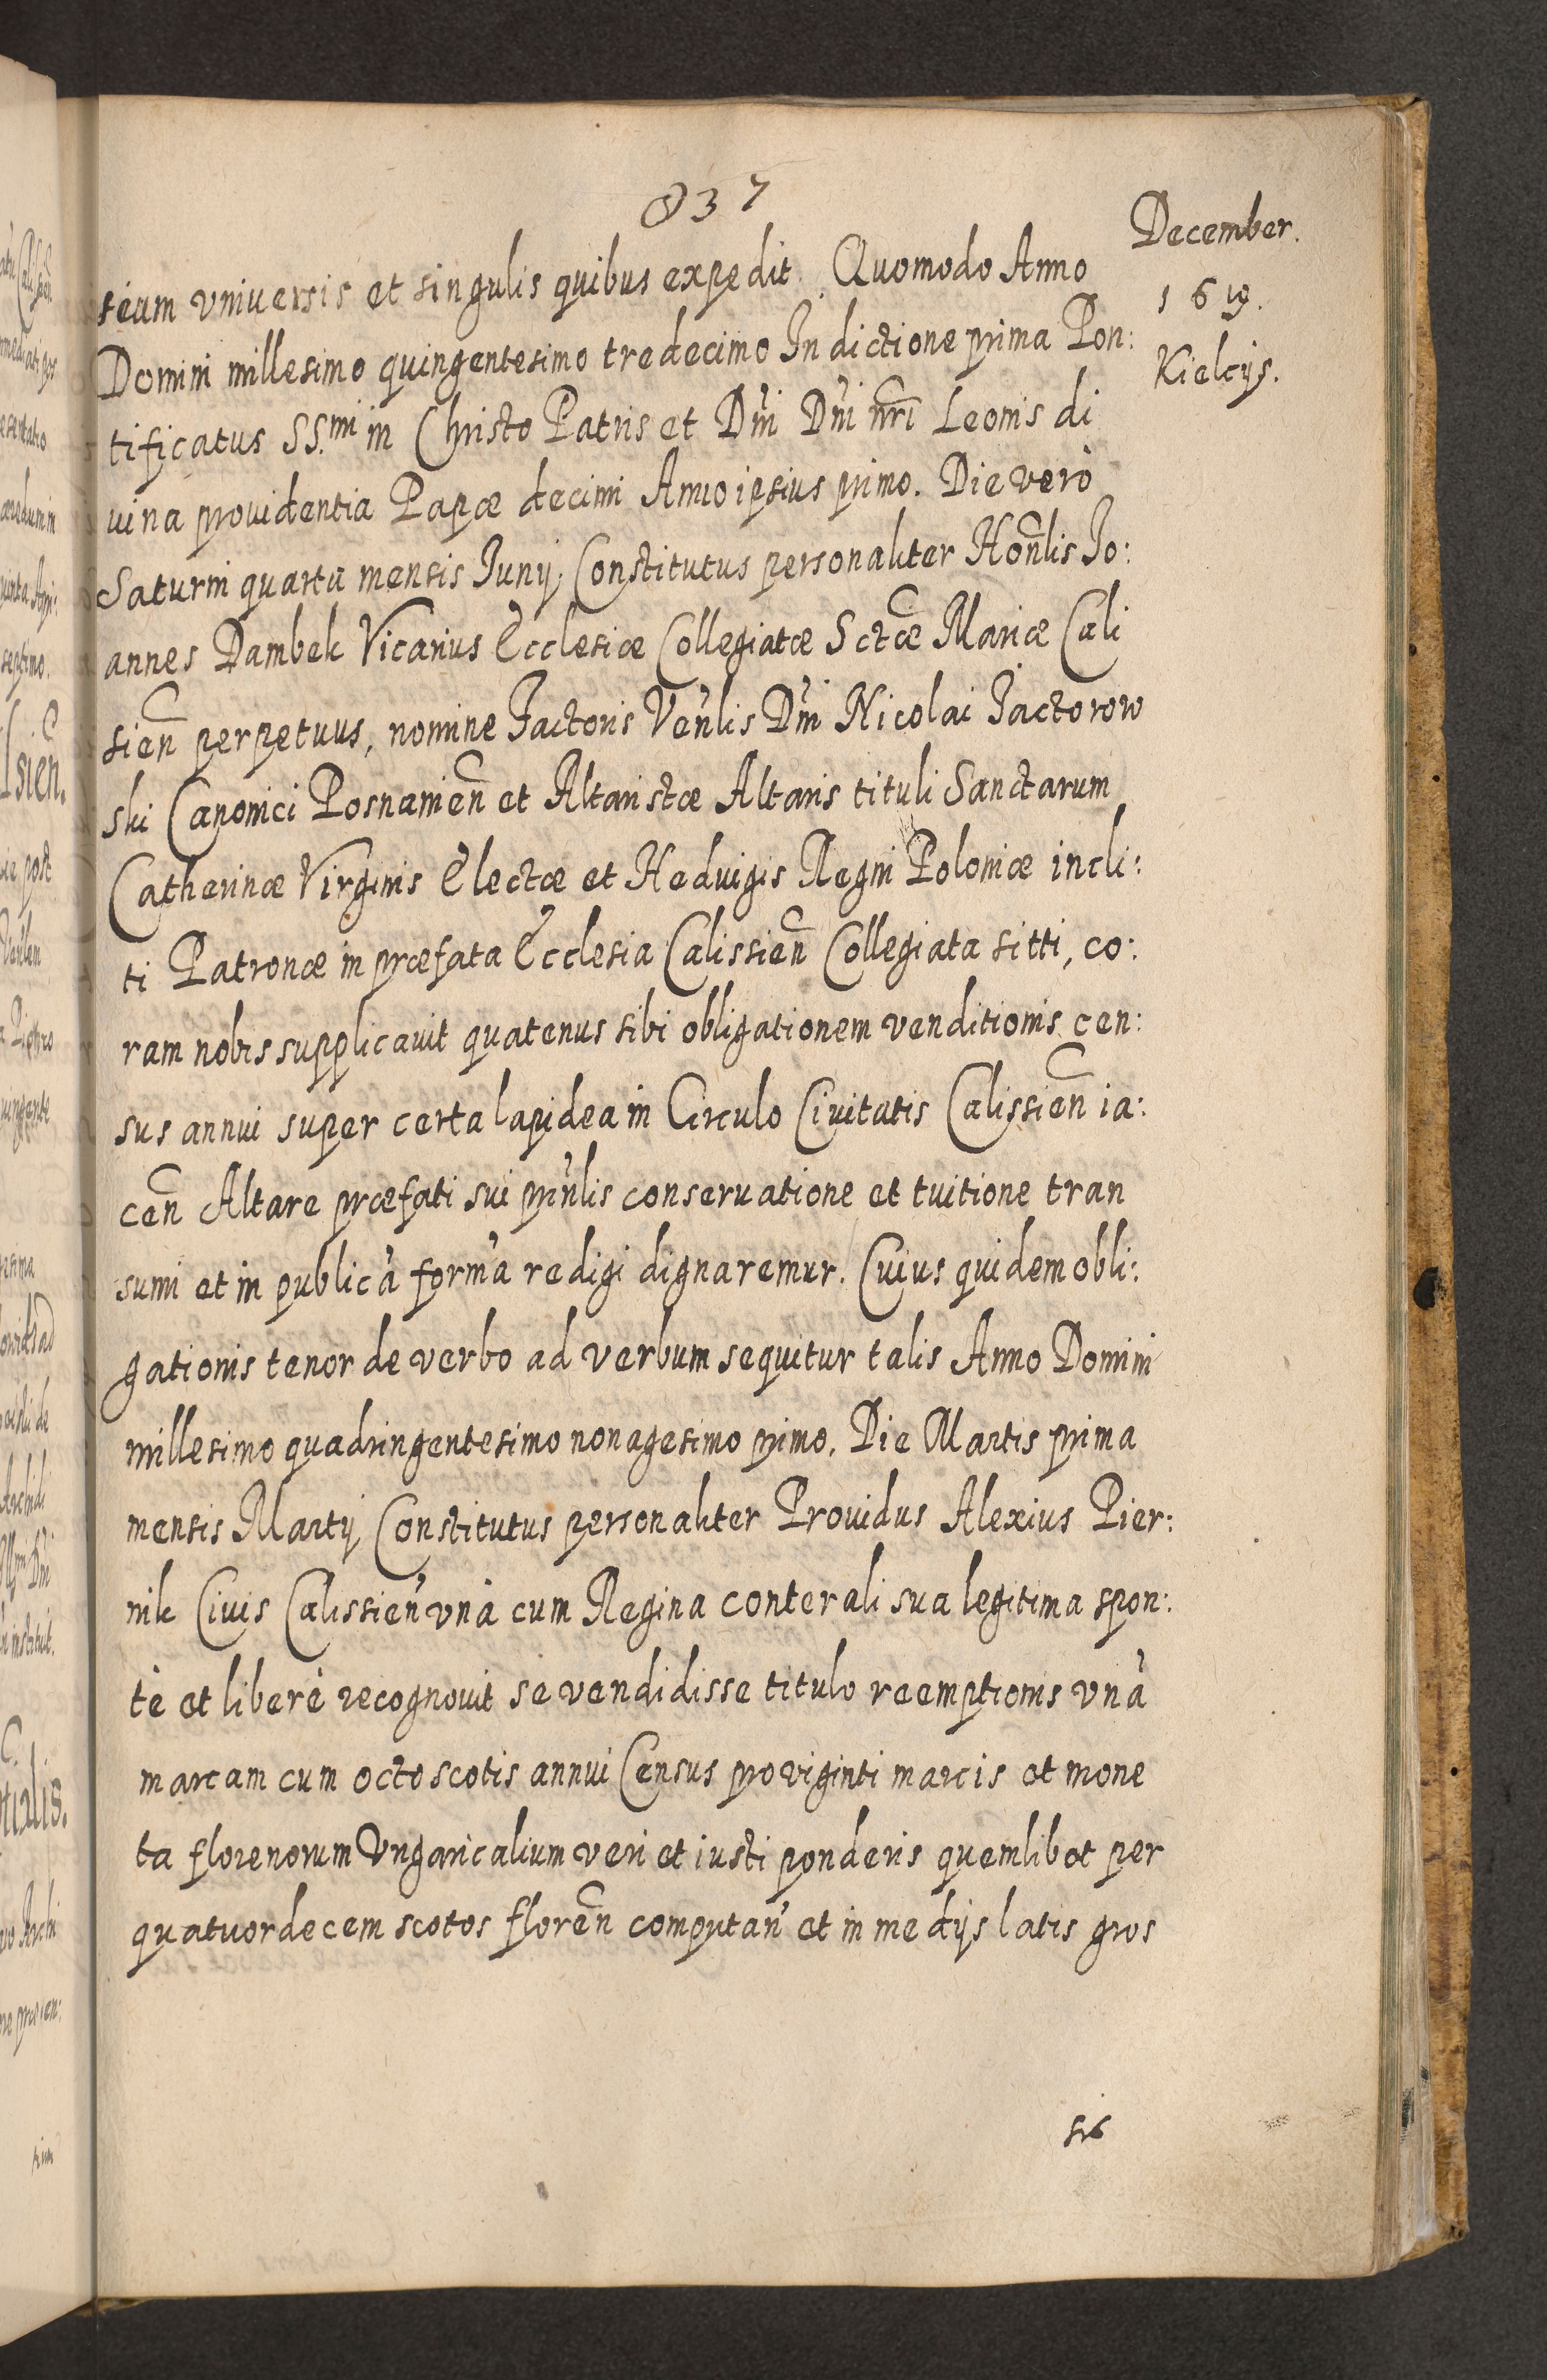 837
December.
1619.
Kielcijs.
seum vniuersis et singulis quibus expedit. Quomodo Anno
Domini millesimo quingentesimo tredecimo Indictione prima Pon:
tificatus SS.mi in Christo Patris et Dni Dni nri Leonis di
uina prouidentia Papæ decimi Anno ipsius primo. Die verò
Saturni quarta mensis Junij, Constitutus personaliter Honlis Jo:
annes Dambek Vicarius Ecclesiæ Collegiatæ Sctæ Mariæ Cali
sien perpetuus, nomine Factoris Venlis Dni Nicolai Jactorow
ski Canonici Posnanien et Altaristæ Altaris tituli Sanctarum
Catherinæ Virginis Electæ et Heduigis Regni Poloniæ incli:
ti Patronæ in præfata Ecclesia Calissien Collegiata sitti, co:
ram nobis supplicauit quatenus sibi obligationem venditionis cen:
sus annui super certa lapidea in Circulo Ciuitatis Calissien ia:
cen Altare præfati sui prinlis conseruatione et tuitione tran
sumi et in publicà formà redigi dignaremur. Cuius quidem obli:
gationis tenor de verbo ad verbum sequitur talis Anno Domini
millesimo quadringentesimo nonagesimo primo. Die Martis prima
mensis Martij Constitutus personaliter Prouidus Alexius Pier:
nik Ciuis Calissien vnà cum Regina conterali sua legitima spon:
tè et liberè recognouit se vendidisse titulo reemptionis vnà
marcam cum octo scotis annui Census pro viginti marcis et mone
ta florenorum Vngaricalium veri et iusti ponderis quemlibet per
quatuordecem scotos floren computan et in medijs latis gros
sis